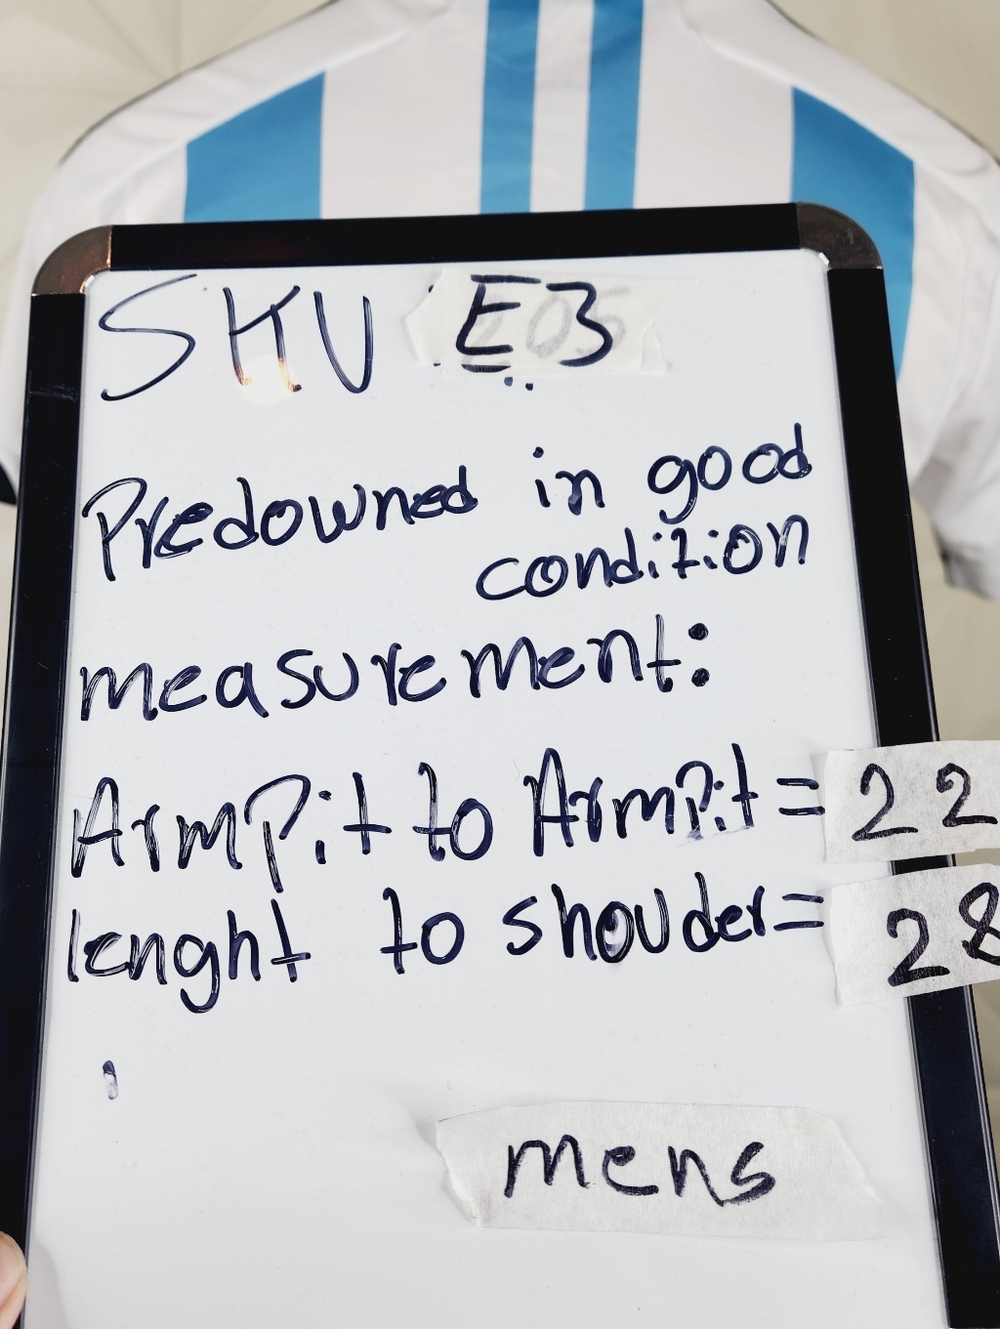 SKU E3
Predowned in good
condition
measurement:
ArmPit to ArmPit = 22
lenght to shouder = 28
mens